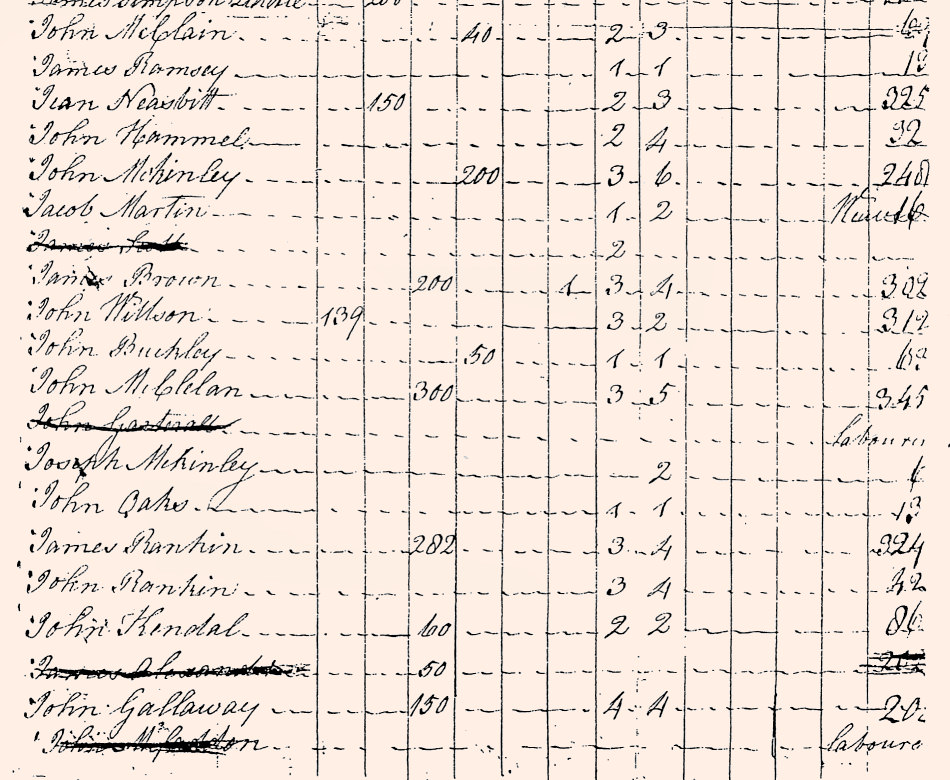 John McClain 40 2 3
James Ramsey 1 1
Jean Neasbitt 150 2 3 325
John Hammel 2 4 32
John Mckinley 200 3 6 248
Jacob Martin 1 2
James Scott 2
James Brown 200 1 3 4 302
John Willson 139 3 2 312
John Buckley 50 1 1
John McClelan 300 3 5 345
John
Joseph Mckinley 2
John Oaks 1 1 13
James Rankin 282 3 4 324
John Rankin 3 4 42
John Kendal 60 2 2 86
James Alexander 50
John Gallaway 150 4 4
John